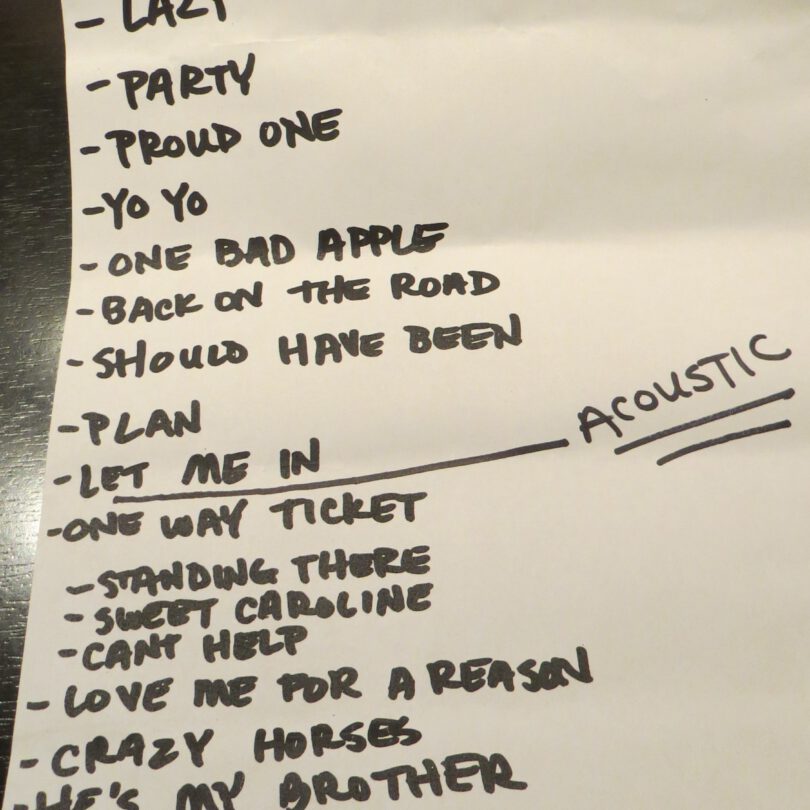 - LAZY
- PARTY
- PROUD ONE
- YO YO
- ONE BAD APPLE
- BACK ON THE ROAD
- SHOULD HAVE BEEN
- PLAN
- LET ME IN
ACOUSTIC
- ONE WAY TICKET
- STANDING THERE
- SWEET CAROLINE
- CANT HELP
- LOVE ME FOR A REASON
- CRAZY HORSES
- HE'S MY BROTHER